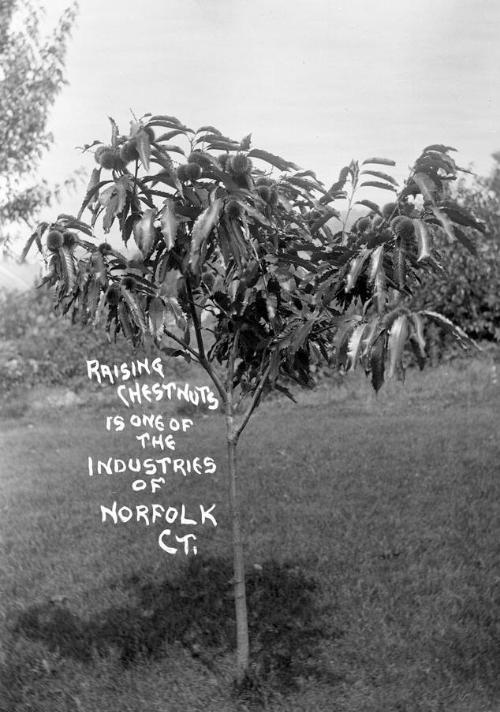 RAISING
CHESTNUTS
IS ONE OF
THE
INDUSTRIES
OF
NORFOLK
CT.